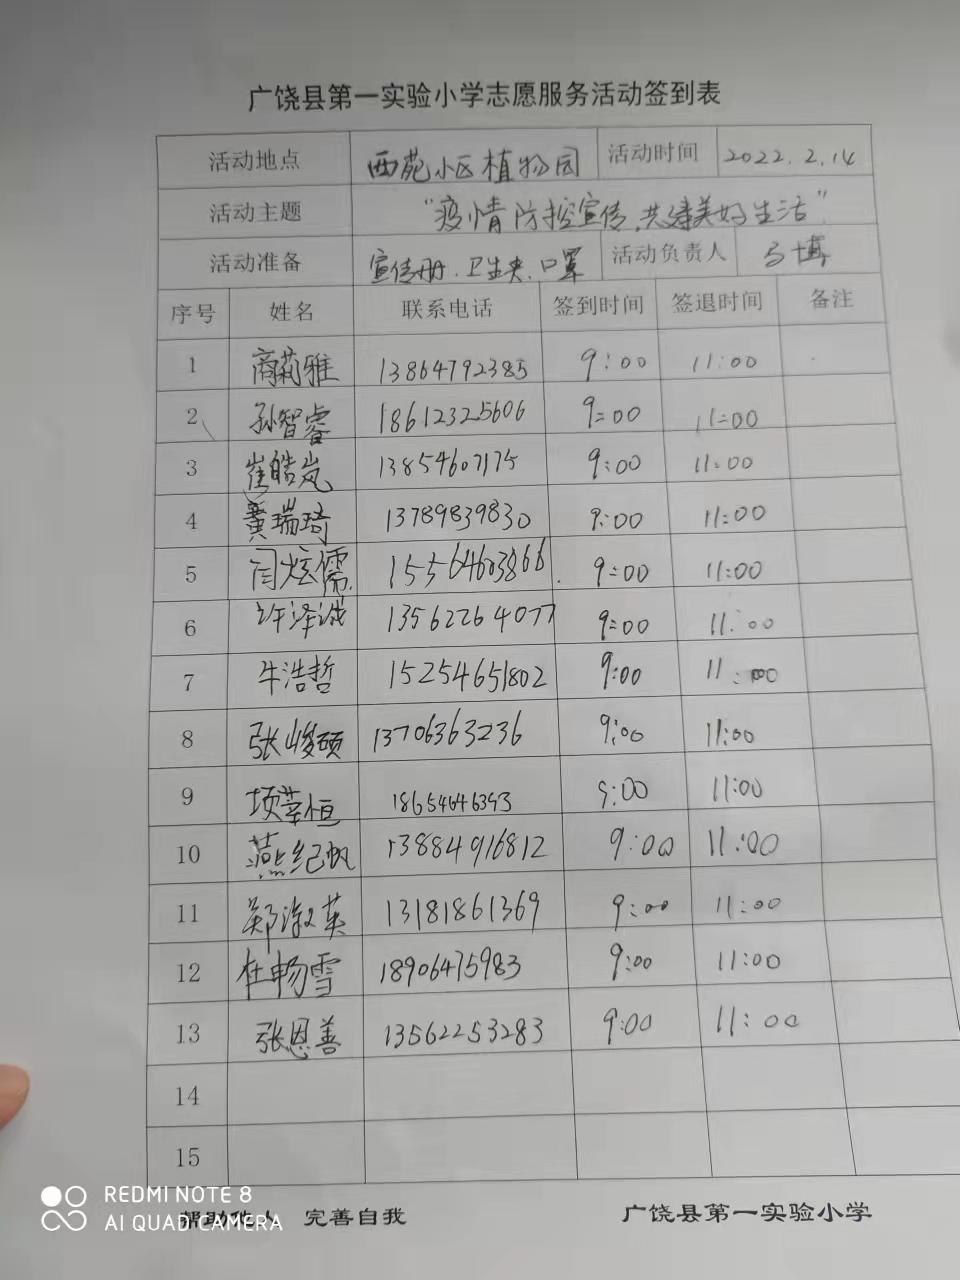 广饶县第一实验小学志愿服务活动签到表
活动地点 西苑小区植物园 活动时间 2022.2.14
活动主题 "疫情防控宣传,共建美好生活"
活动准备 宣传册.卫生夹.口罩 活动负责人 马博
序号 姓名 联系电话 签到时间 签退时间 备注
1 商莉雅 13864792385 9:00 11:00
2 孙智睿 18612325606 9:00 11:00
3 崔皓岚 13854607175 9:00 11:00
4 黄瑞琦 13789839830 9:00 11:00
5 闫炫儒 15564603866 9:00 11:00
6 许泽诚 13562264077 9:00 11:00
7 牛浩哲 15254651802 9:00 11:00
8 张峻硕 13706363236 9:00 11:00
9 项莘恒 18654646393 9:00 11:00
10 燕纪帆 13884916812 9:00 11:00
11 郑淑英 13181861369 9:00 11:00
12 杜畅雪 18906475983 9:00 11:00
13 张恩善 13562253283 9:00 11:00
14
15
帮助他人 完善自我 广饶县第一实验小学
REDMI NOTE 8
AI QUAD CAMERA